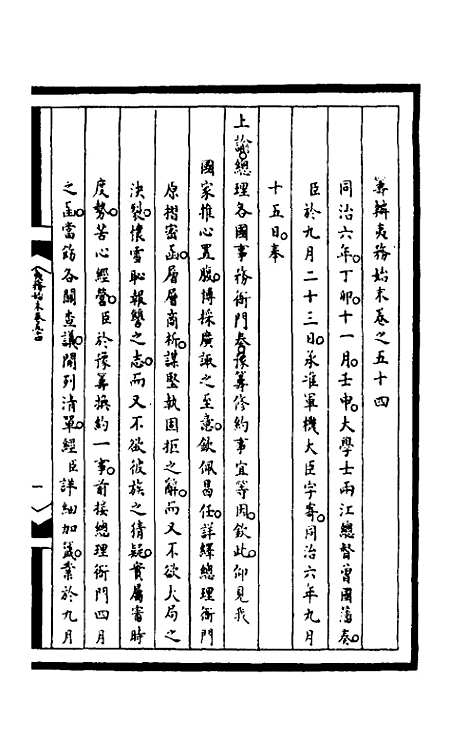 籌辦夷務始末卷之五十四
同治六年。丁卯。十一月。壬申。大學士兩江總督曾國藩奏。
臣於九月二十三日。承准軍機大臣字寄。同治六年九月
十五日。奉
上諭。總理各國事務衙門奏豫籌修約事宜等因。欽此。仰見我
國家推心置腹。博採廣諏之至意。欽佩曷任。詳繹總理衙門
原摺密函。層層商析。謀堅執固拒之解。而又不欲大局之
決裂。懷雪恥報讐之志。而又不欲彼族之猜疑。實屬審時
度勢。苦心經營。臣於豫籌換約一事。前接總理衙門四月
之函。當飭各關查議。開列清單。經臣詳細加簽。業於九月
夷務始末卷五十四
一